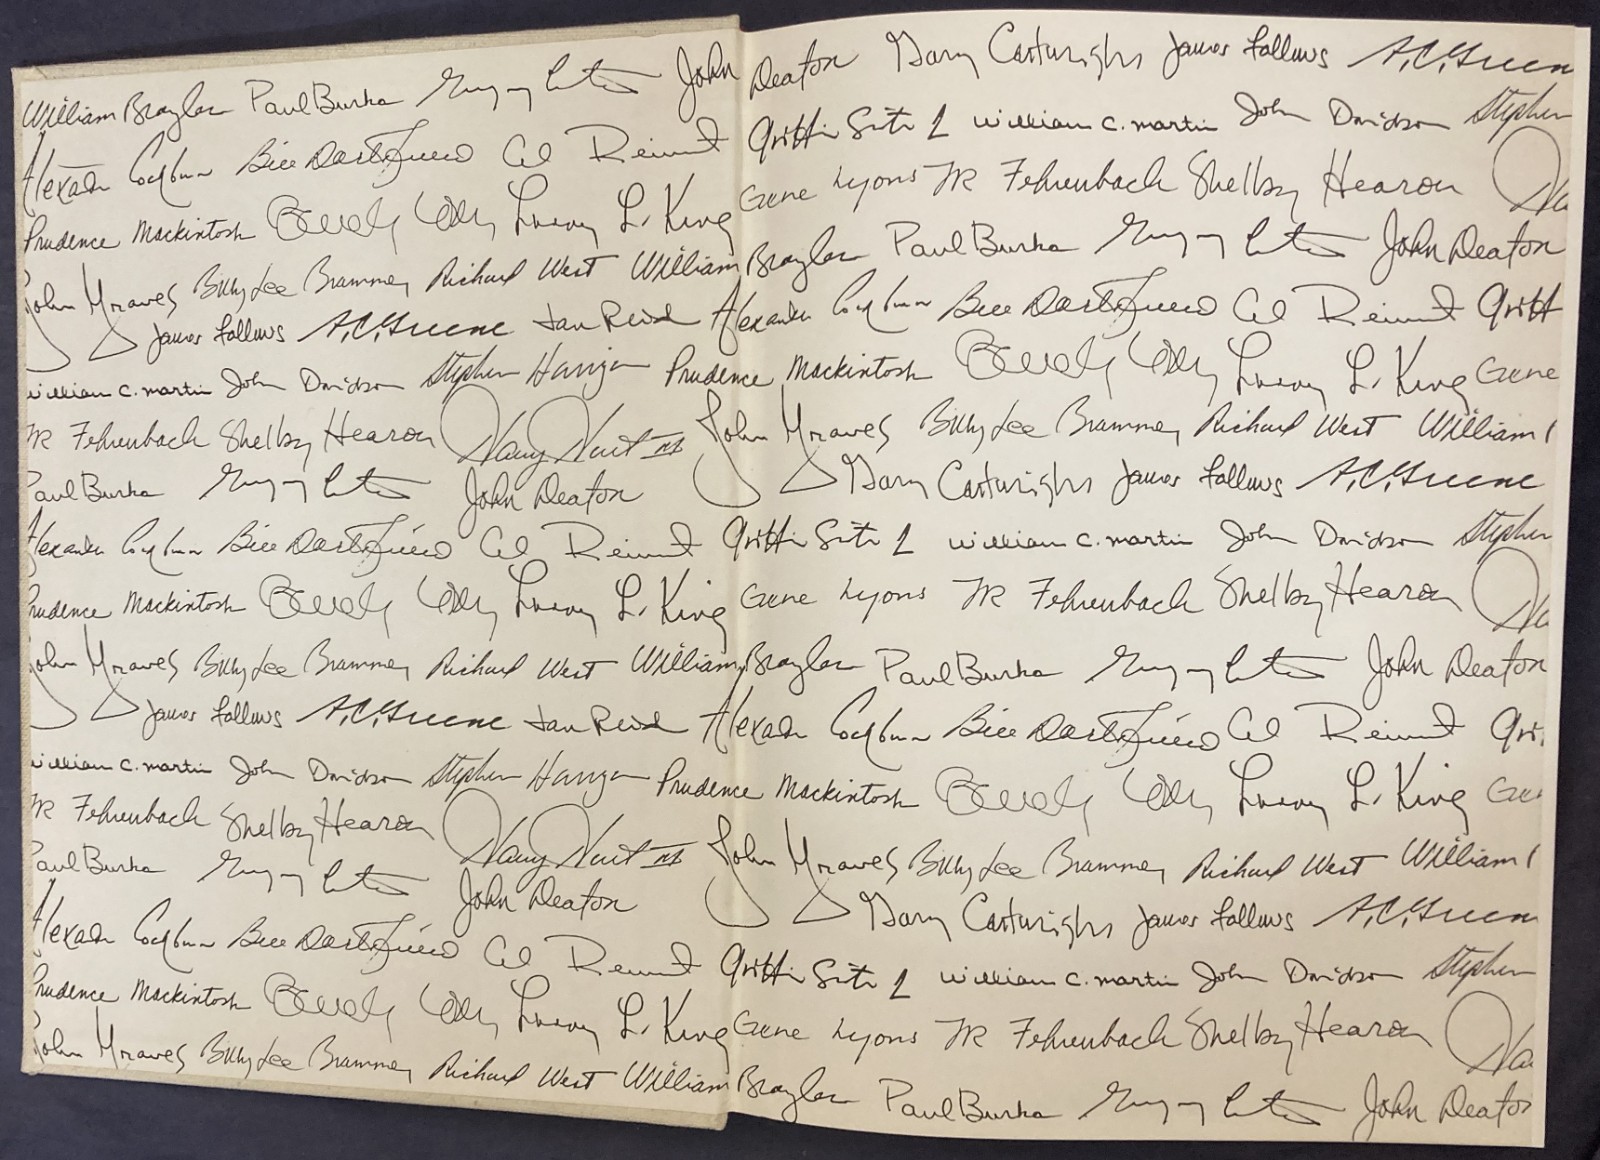 William Broyles Paul Burka Gregory Curtis John Deaton Gary Cartwright James Fallows A.C. Greene
Alexander Cockburn Bill Al Reinert Griffin Smith Jr William C. Martin John Davidson Stephen
Prudence Mackintosh Beverly Lowry Larry L. King Gene Lyons TR Fehrenbach Shelby Hearon
John Graves Billy Lee Brammer Richard West William Broyles Paul Burka Gregory Curtis John Deaton
James Fallows A.C. Greene Jan Reid Alexander Cockburn Bill Al Reinert Griff
William C. Martin John Davidson Stephen Harrigan Prudence Mackintosh Beverly Lowry Larry L. King Gene
TR Fehrenbach Shelby Hearon Harry Hurt III John Graves Billy Lee Brammer Richard West William
Paul Burka Gregory Curtis John Deaton Gary Cartwright James Fallows A.C. Greene
Alexander Cockburn Bill Al Reinert Griffin Smith Jr William C. Martin John Davidson Stephen
Prudence Mackintosh Beverly Lowry Larry L. King Gene Lyons TR Fehrenbach Shelby Hearon
John Graves Billy Lee Brammer Richard West William Broyles Paul Burka Gregory Curtis John Deaton
James Fallows A.C. Greene Jan Reid Alexander Cockburn Bill Al Reinert Gri
William C. Martin John Davidson Stephen Harrigan Prudence Mackintosh Beverly Lowry Larry L. King Gene
TR Fehrenbach Shelby Hearon Harry Hurt III John Graves Billy Lee Brammer Richard West William
Paul Burka Gregory Curtis John Deaton Gary Cartwright James Fallows A.C. Green
Alexander Cockburn Bill Al Reinert Griffin Smith Jr William C. Martin John Davidson Stephen
Prudence Mackintosh Beverly Lowry Larry L. King Gene Lyons TR Fehrenbach Shelby Hearon
John Graves Billy Lee Brammer Richard West William Broyles Paul Burka Gregory Curtis John Deaton